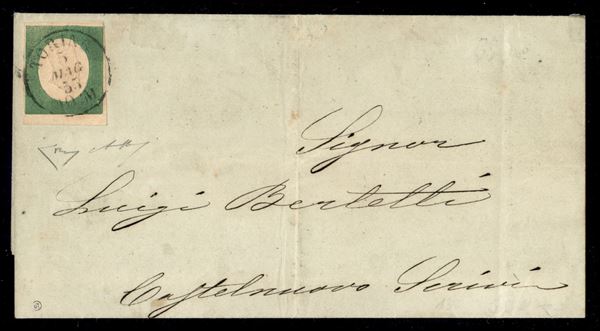 TORINO
5
MAG
55
10 M
Signor
Luigi Bertelli
Castelnuovo Scrivia